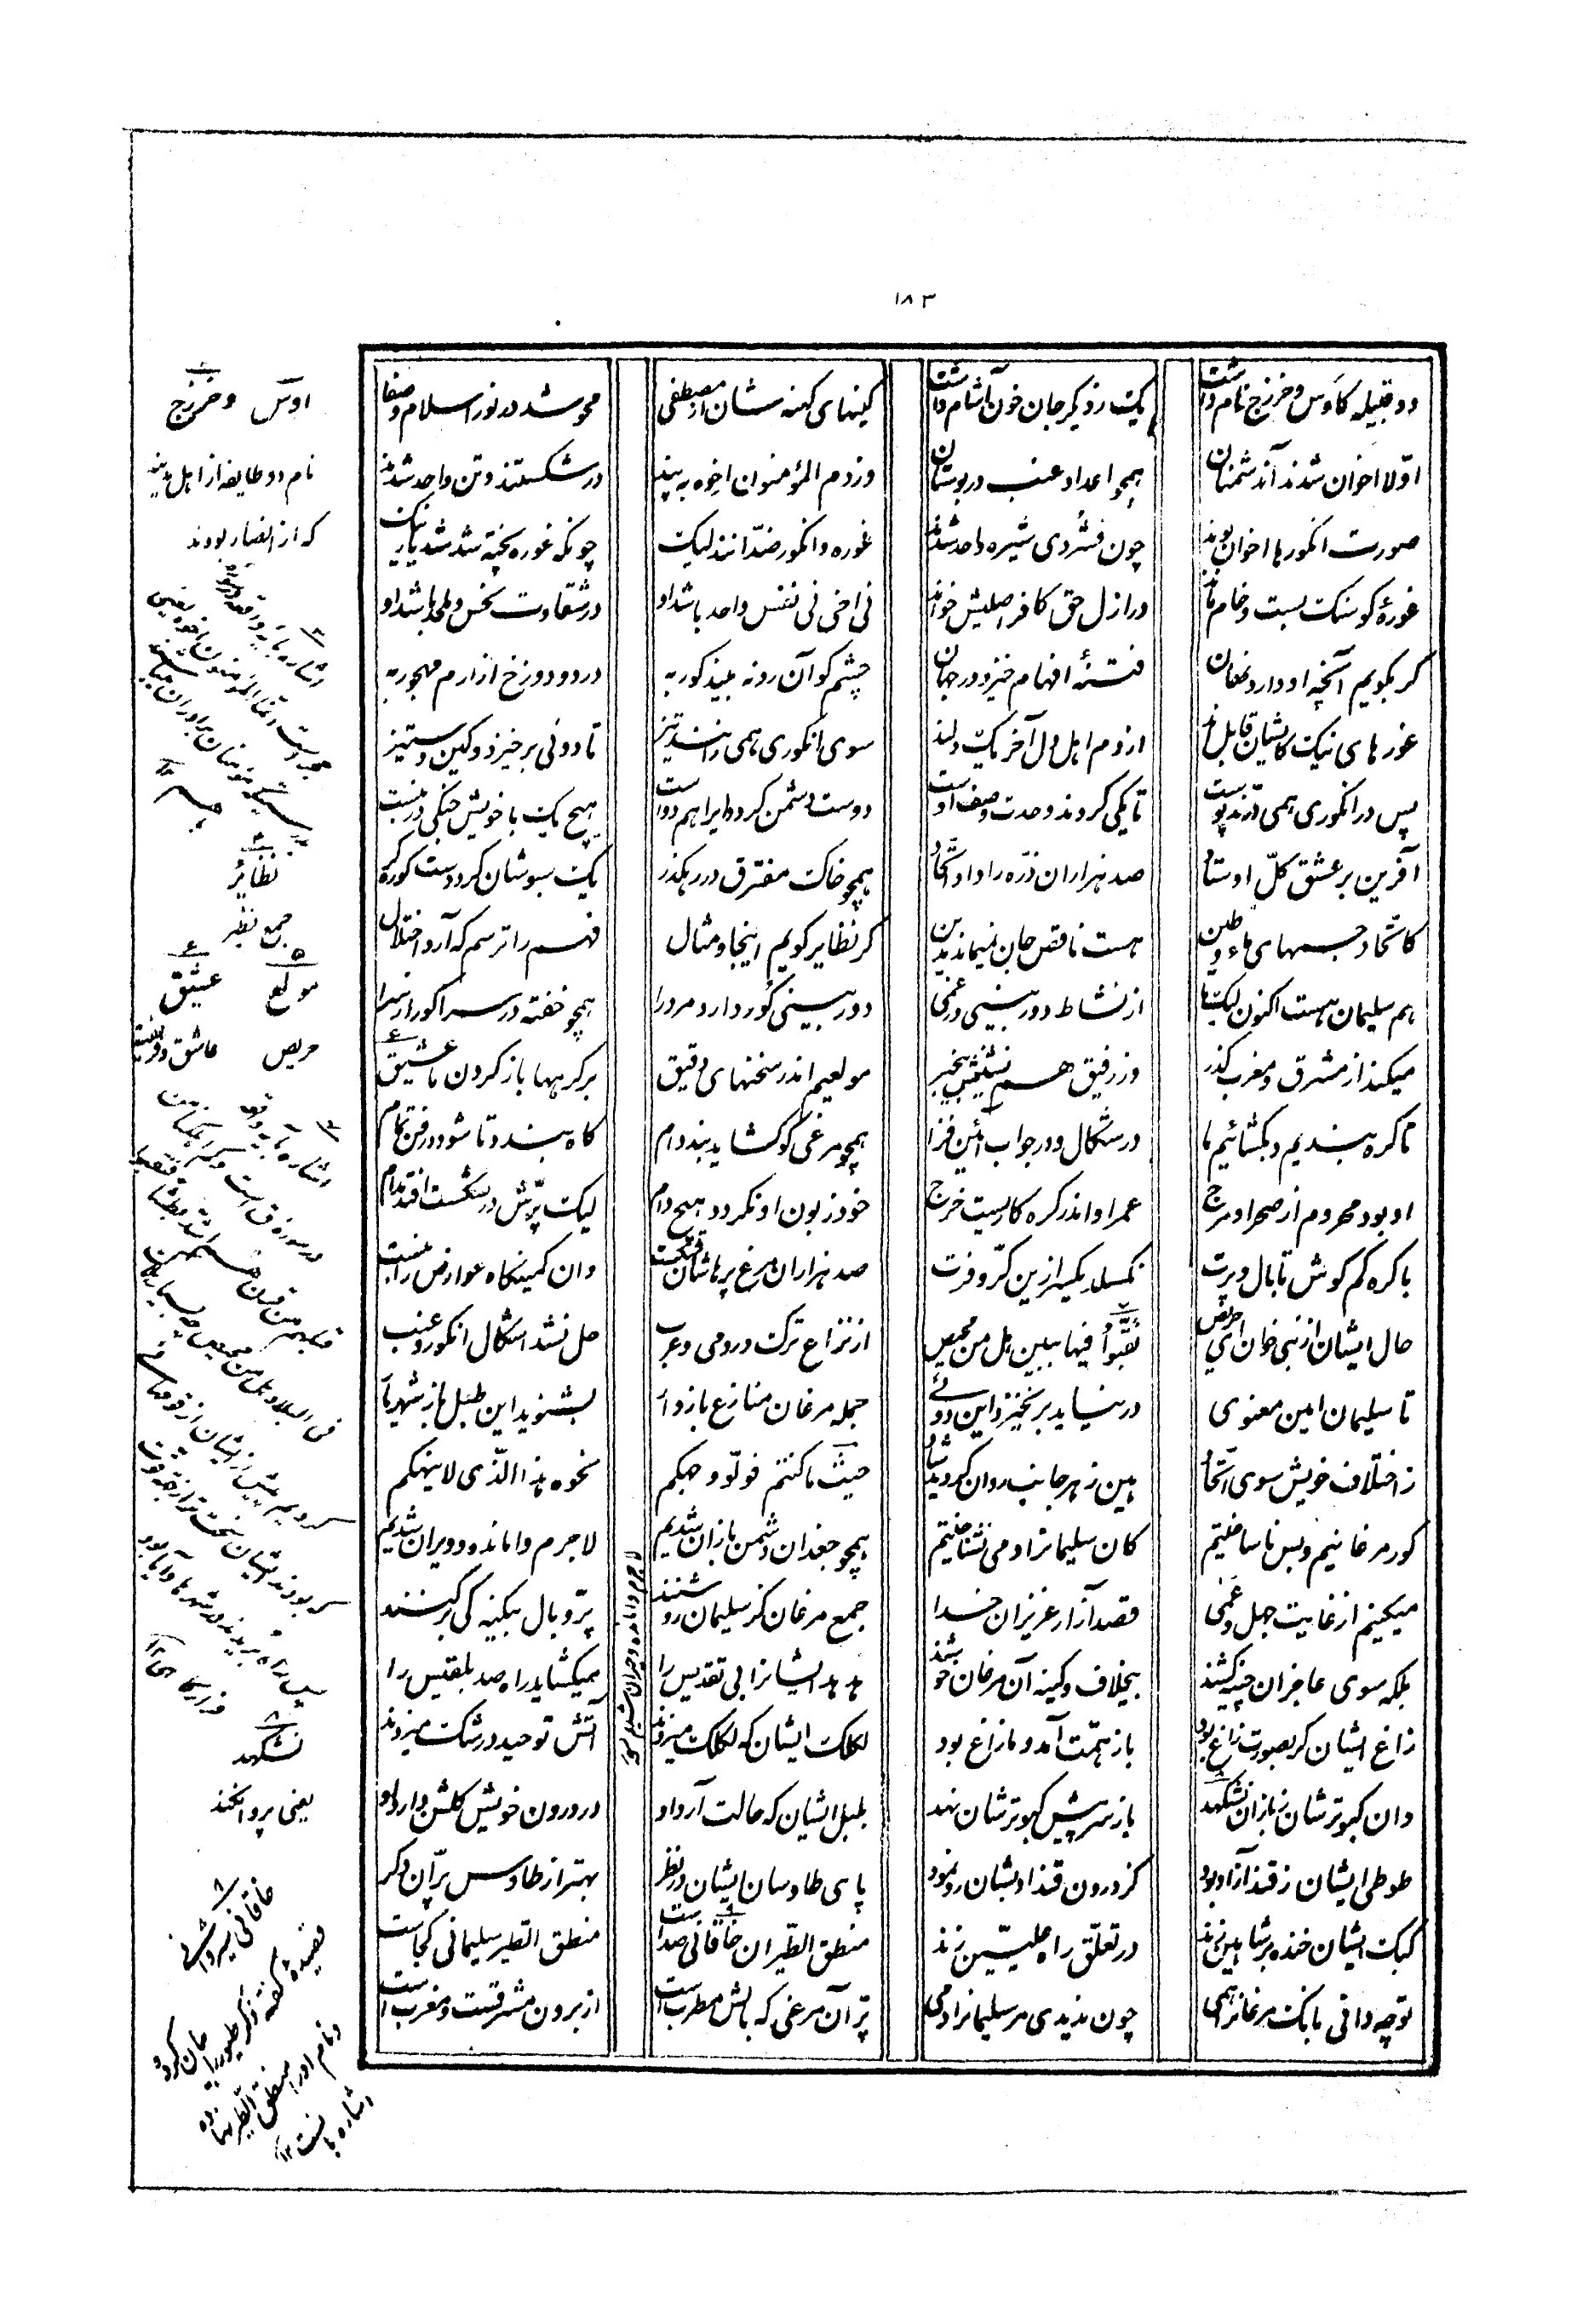 ۱۸۳
دو قبیله کاوس و خزرج نام داشت یک ز دیگر جان خون آشام داشت کینهای کهنه شان از مصطفی محو شد در نور اسلام و صفا
اوّلا اخوان شدند آن دشمنان همچو اعداد عنب در بوستان وز دم المؤمنون اخوه به پند در شکستند و تن واحد شدند
صورت انکورها اخوان بود چون فشردی شیره واحد شود غوره و انکور ضدّانند لیک چونکه غوره پخته شد شد یار نیک
غورهٔ کو سنک بست و خام ماند در ازل حق کافر اصلیش خواند نی اخی نی نفس واحد باشد او در شقاوت نحس و ملحد باشد او
کر بکویم آنچه او دارد نهان فتنهٔ افهام خیزد در جهان چشم کو آن رو نه بیند کور به دود دوزخ از ارم مهجور به
غورهای نیک کایشان قابل‌اند از دم اهل دل آخر یک دلند سوی انکوری همی رانند تیز تا دوئی بر خیزد و کین و ستیز
پس در انکوری همی درند پوست تا یکی کردند وحدت وصف اوست دوست دشمن کردد ایرا هم دو است هیچ یک با خویش جنکی در نبست
آفرین بر عشق کلّ اوستاد صد هزاران ذرّه را داد اتّحاد همچو خاک مفترق در رهکذر یک سبوشان کرد دست کوزه کر
کاتّحاد جسمهای ماء و طین هست ناقص جان نمیماند بدین کر نظایر کویم اینجا و مثال فهم را ترسم که آرد اختلال
هم سلیمان هست اکنون لیک ما از نشاط دور بینی در عمی دور بینی کور دارد مرد را همچو خفته در سرا کور از سرا
میکند از مشرق و مغرب کذر وز رفیق هم نشینش بیخبر مولعیم اندر سخنهای دقیق بر کرهها باز کردن ما عشیق
تا کره بندیم و بکشائیم ما در شکال و در جواب آئین فزا همچو مرغی کو کشاید بند دام کاه بندد تا شود در فن تمام
او بود محروم از صحرا و مرج عمر او اندر کره کاریست خرج خود زبون او نکردد هیچ دام لیک پرّش در شکست افتد مدام
با کره کم کوش تا بال و پرت نکسلد یکیک ازین کرّ و فرت صد هزاران مرغ پرهاشان شکست وان کمینکاه عوارض را نبست
حال ایشان از نبی خوان ای حریص نقّبوا فیها ببین هل من محیص از نزاع ترک و رومی و عرب حل نشد اشکال انکور و عنب
تا سلیمان امین معنوی در نیاید بر نخیزد این دوئی جمله مرغان منازع بازوار بشنوید این طبل باز شهریار
ز اختلاف خویش سوی اتّحاد هین ز هر جانب روان کردید شاد حیث ما کنتم فولّوا وجهکم نحوه هذا الّذی لا ینهکم
کور مرغانیم و بس ناساختیم کان سلیمانرا دمی نشناختیم همچو جغدان دشمن بازان شدیم لا جرم وامانده و ویران شدیم
میکنیم از غایت جهل و عمی قصد آزار عزیزان خدا جمع مرغان کز سلیمان روشنند پرّ و بال بیکنه کی بر کنند
بلکه سوی عاجزان چینه کشند بیخلاف و کینه آن مرغان خوشند هدهد ایشان پی تقدیس را میکشاید راه صد بلقیس را
زاغ ایشان کر بصورت زاغ بود باز همّت آمد و مازاغ بود لکلک ایشان که لکلک میزند آتش توحید در شک میزند
وان کبوترشان ز بازان نشکهد باز سر پیش کبوترشان نهد بلبل ایشان که حالت آرد او در درون خویش کلشن دارد او
طوطی ایشان ز قند آزاد بود کز درون قند ابدشان رو نمود پای طاوسان ایشان در نظر بهتر از طاوس پرّان دکر
کبک ایشان خنده بر شاهین زند در تعلّق راه علیّین زند منطق الطّیران خاقانی صداست منطق الطّیر سلیمانی کجاست
تو چه دانی بانک مرغانرا همی چون ندیدی مر سلیمانرا دمی پرّ آن مرغی که بانکش مطرب است از برون مشرقست و مغرب است
لا جرم وامانده و حیران شدیم
اوس و خزرج
نام دو طایفه از اهل مدینه
که از انصار بودند
نظائر
جمع نظیر
مولع عشیق
حریص عاشق و فریفته
نشکهد
یعنی پروا نکند
خاقانی شیروانی
قصیدهٔ کفته ذکر طیور را بیان کرده
و نام او را منطق الطّیر نهاده
اشاره بانست ۱۲